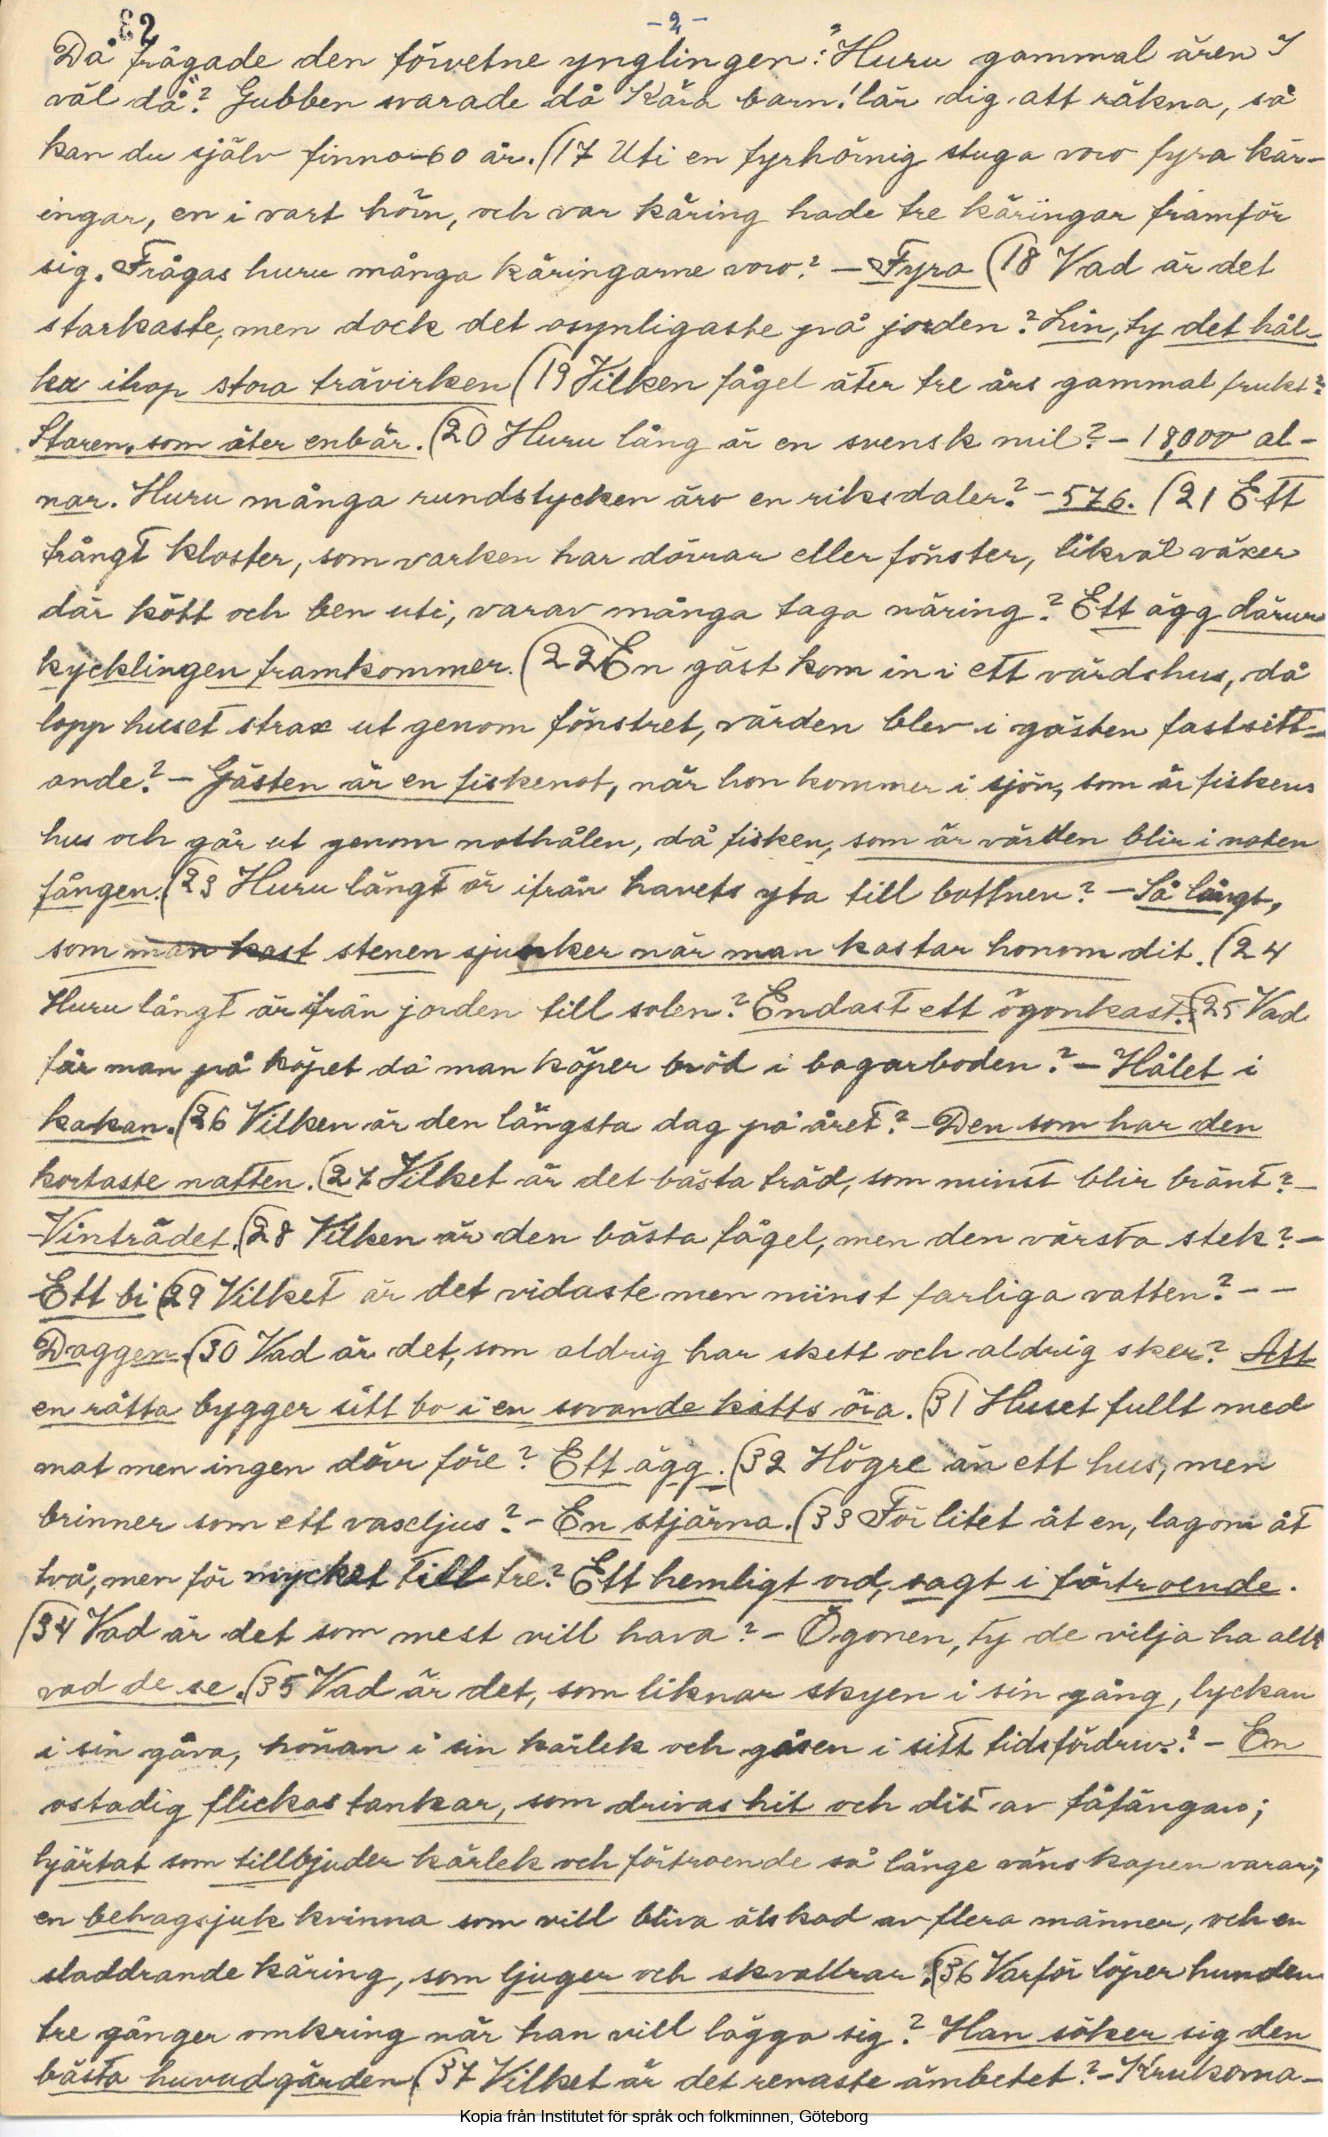 32
-2-
Då frågade den förvetne ynglingen: "Huru gammal ären I
väl då"? Gubben svarade då Kära barn! lär dig att räkna, så
kan du själv finna-60 år. (17 Uti en fyrhörnig stuga voro fyra kär-
ingar, en i vart hörn, och var käring hade tre käringar framför
sig. Frågas huru många käringarne voro? - Fyra (18 Vad är det
starkaste, men dock det osynligaste på jorden? Lim, ty det hål-
ka ihop stora trävirken (19 Vilken fågel äter tre års gammal frukt?
Staren, som äter enbär. (20 Huru lång är en svensk mil? - 18,000 al-
nar. Huru många rundstycken äro en riksdaler? - 576. (21 Ett
trångt kloster, som varken har dörrar eller fönster, likväl växer
där kött och ben uti, varav många taga näring? Ett ägg därur
kycklingen framkommer. (22 En gäst kom in i ett värdshus, då
lopp huset strax ut genom fönstret, värden blev i gästen fastsitt-
ande? - Gästen är en fiskenot, när hon kommer i sjön, som är fiskens
hus och går ut genom nothålen, då fisken, som är värden blir i noten
fången. (23 Huru långt är ifrån havets yta till bottnen? - Så långt,
som man kast stenen sjunker när man kastar honom dit. (24
Huru långt är ifrån jorden till solen? Endast ett ögonkast. (25 Vad
får man på köpet då man köper bröd i bagarboden? - Hålet i
kakan. (26 Vilken är den längsta dag på året? - Den som har den
kortaste natten. (27 Vilket är det bästa träd, som minst blir bränt? -
Vinträdet. (28 Vilken är den bästa fågel, men den värsta stek? -
Ett bi (29 Vilket är det vidaste men minst farliga vatten? - -
Daggen. (30 Vad är det, som aldrig har skett och aldrig sker? Att
en råtta bygger sitt bo i en sovande katts öra. (31 Huset fullt med
mat men ingen dörr före? Ett ägg. (32 Högre än ett hus, men
brinner som ett vaxljus? - En stjärna. (33 För litet åt en, lagom åt
två, men för mycket till tre? Ett hemligt ord, sagt i förtroende.
(34 Vad är det som mest vill hava? - Ögonen, ty de vilja ha allt
vad de se. (35 Vad är det, som liknar skyen i sin gång, lyckan
i sin gåva, hönan i sin kärlek och gåsen i sitt tidsfördriv? - En
ostadig flickas tankar, som drivas hit och dit av fåfängan;
hjärtat som tillbjuder kärlek och förtroende så länge vänskapen varar;
en behagsjuk kvinna som vill bliva älskad av flera männer, och en
sladdrande käring, som ljuger och skvallrar. (36 Varför löper hunden
tre gånger omkring när han vill lägga sig? Han söker sig den
bästa huvudgärden (37 Vilket är det renaste ämbetet? - Krukoma-
Kopia från Institutet för språk och folkminnen, Göteborg